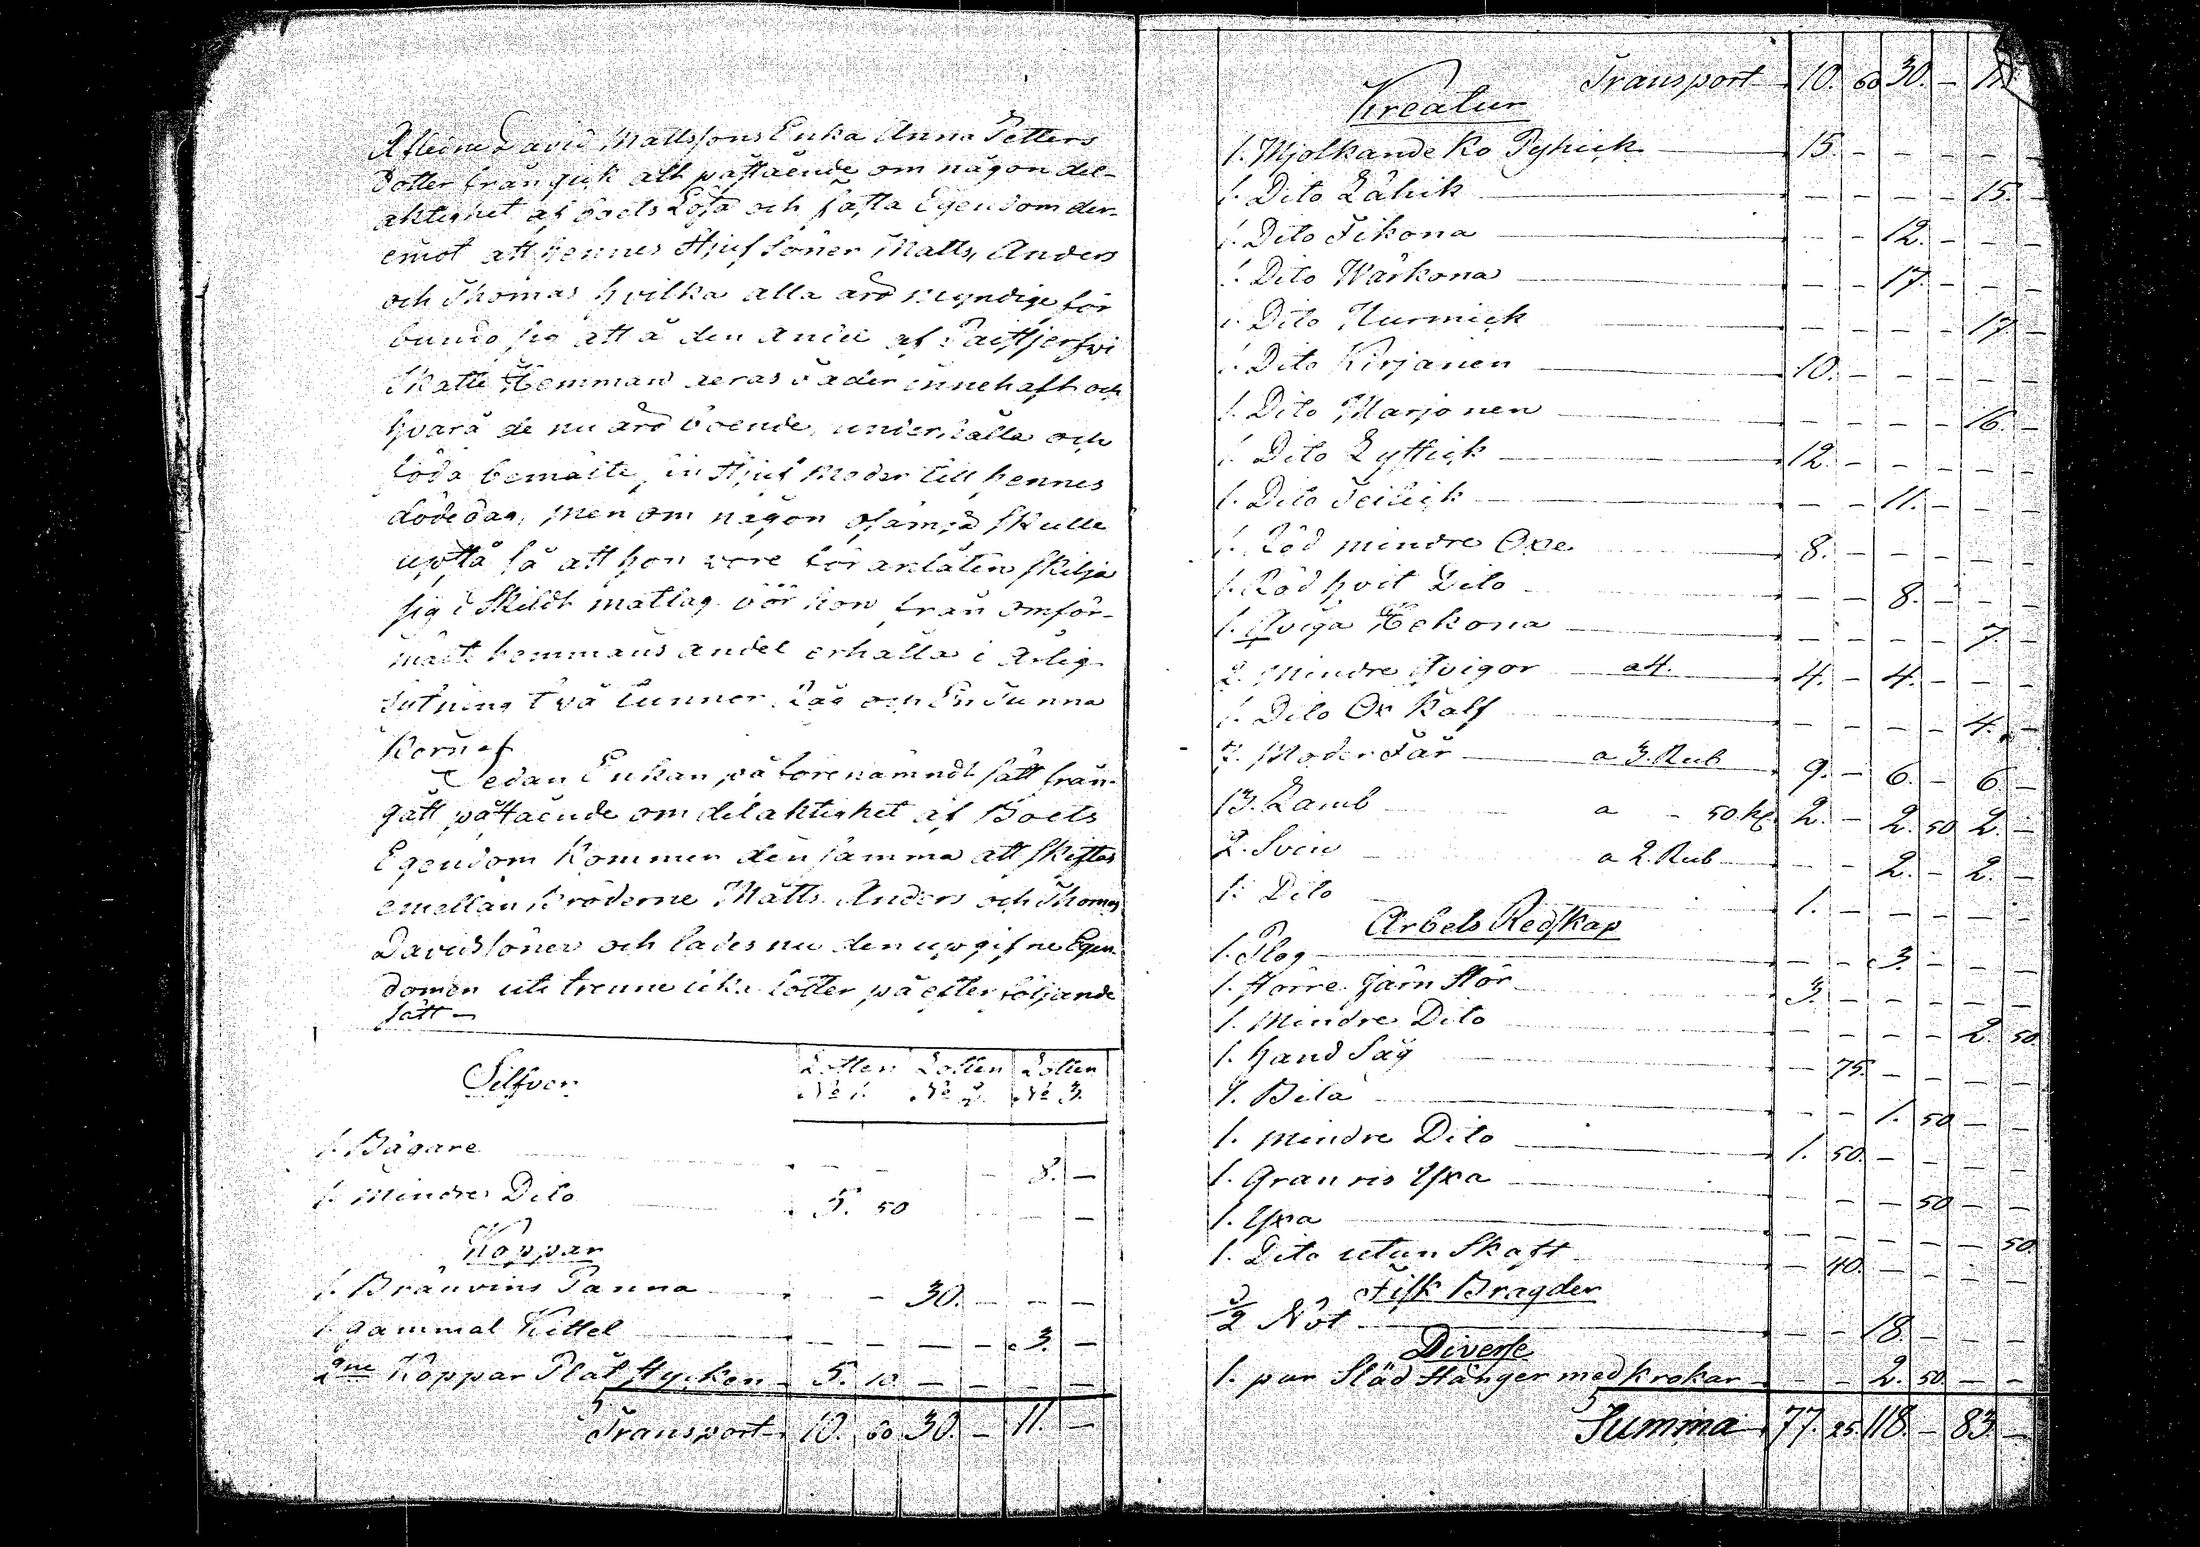 Afledne David Mattssons Enka Anna Petters
dotter frångick allt påstående om någon del-
aktighet af boets Lösa och fasta Egendom der-
emot att hennes Stjuf Söner Matts, Anders
och Thomas hvilka alla äro myndige för
bundo sig att å den andel af Paistjerfvi
Skatte Hemman deras fader innehaft och
hvarå de nu äro boende, underhålla och
föda bemälte sin Stjuf Moder till hennes
dödedag, men om någon osämja skulle
upstå så att hon vore föranlåten skilja
sig i Skildt matlag bör hon från omför-
mälte hemmans andel erhålla i årlig
sytning två tunnor Råg och En Tunna
Korn af
Sedan Enkan på förenämndt sätt från-
gått påstående om delaktighet af Boets
Egendom kommer den samma att skiftas
emellan Bröderne Matts Anders och Thomas
Davidssöner och lades nu den upgifne Egen-
domen uti trenne lika lotter på efterföljande
sätt —
Silfver Lotten No 1. Lotten No 2. Lotten No 3.
1. Bägare — — — 8. —
1. Mindre Dito 5. 50 — —
Koppar
1. Bränvins Panna — — 30. — — —
1. gammal Kittel — — — — 3. —
2ne Koppar Plåt Stycken 5. 10 — — — —
Transport 10. 60 30. — 11. —
Transport 10. 60 30. — 11.
Kreatur
1. Mjolkande Ko Pyhick 15. — — — — —
1. Dito Lähik — — — — 15. —
1. Dito Tikona — — 12. — — —
1. Dito Warkona — — 17. — — —
1. Dito Murmick — — — — 17. —
1. Dito Kirjanen 10. — — — — —
1. Dito Marjonen — — — — 16. —
1. Dito Lystick 12. — — — — —
1. Dito Teilick — — 11. — — —
1. Röd mindre Oxe 8. — — — — —
1. Röd hvit Dito — — 8. — — —
1. Qviga Hekona — — — — 7. —
2. Mindre Qvigor a 4. 4. — 4. — — —
1. Dito Ox Kalf — — — — 4. —
7. Moder Får a 3. Rub 9. — 6. — 6. —
13. Lamb a — 50. K 2. — 2. 50 2. —
2. Svin a 2. Rub — — 2. — 2. —
1. Dito 1. — — — — —
Arbets Redskap
1. Plog — — 3. — — —
1. Större Järn Stör 3. — — — — —
1. Mindre Dito — — — — 2. 50.
1. hand Såg — 75. — — — —
1. Bila — — 1. 50 — —
1. mindre Dito 1. 50. — — — —
1. Granris Yxa — — — 50 — —
1. Yxa — — — — — 50.
1. Dito utan Skaft — 40. — — — —
Fisk Bragder
1/2 Nöt — — 18. — — —
Diverse
1. par Släd Stänger med krokar — — 2. 50 — —
Summa 77. 25. 118. — 83. —